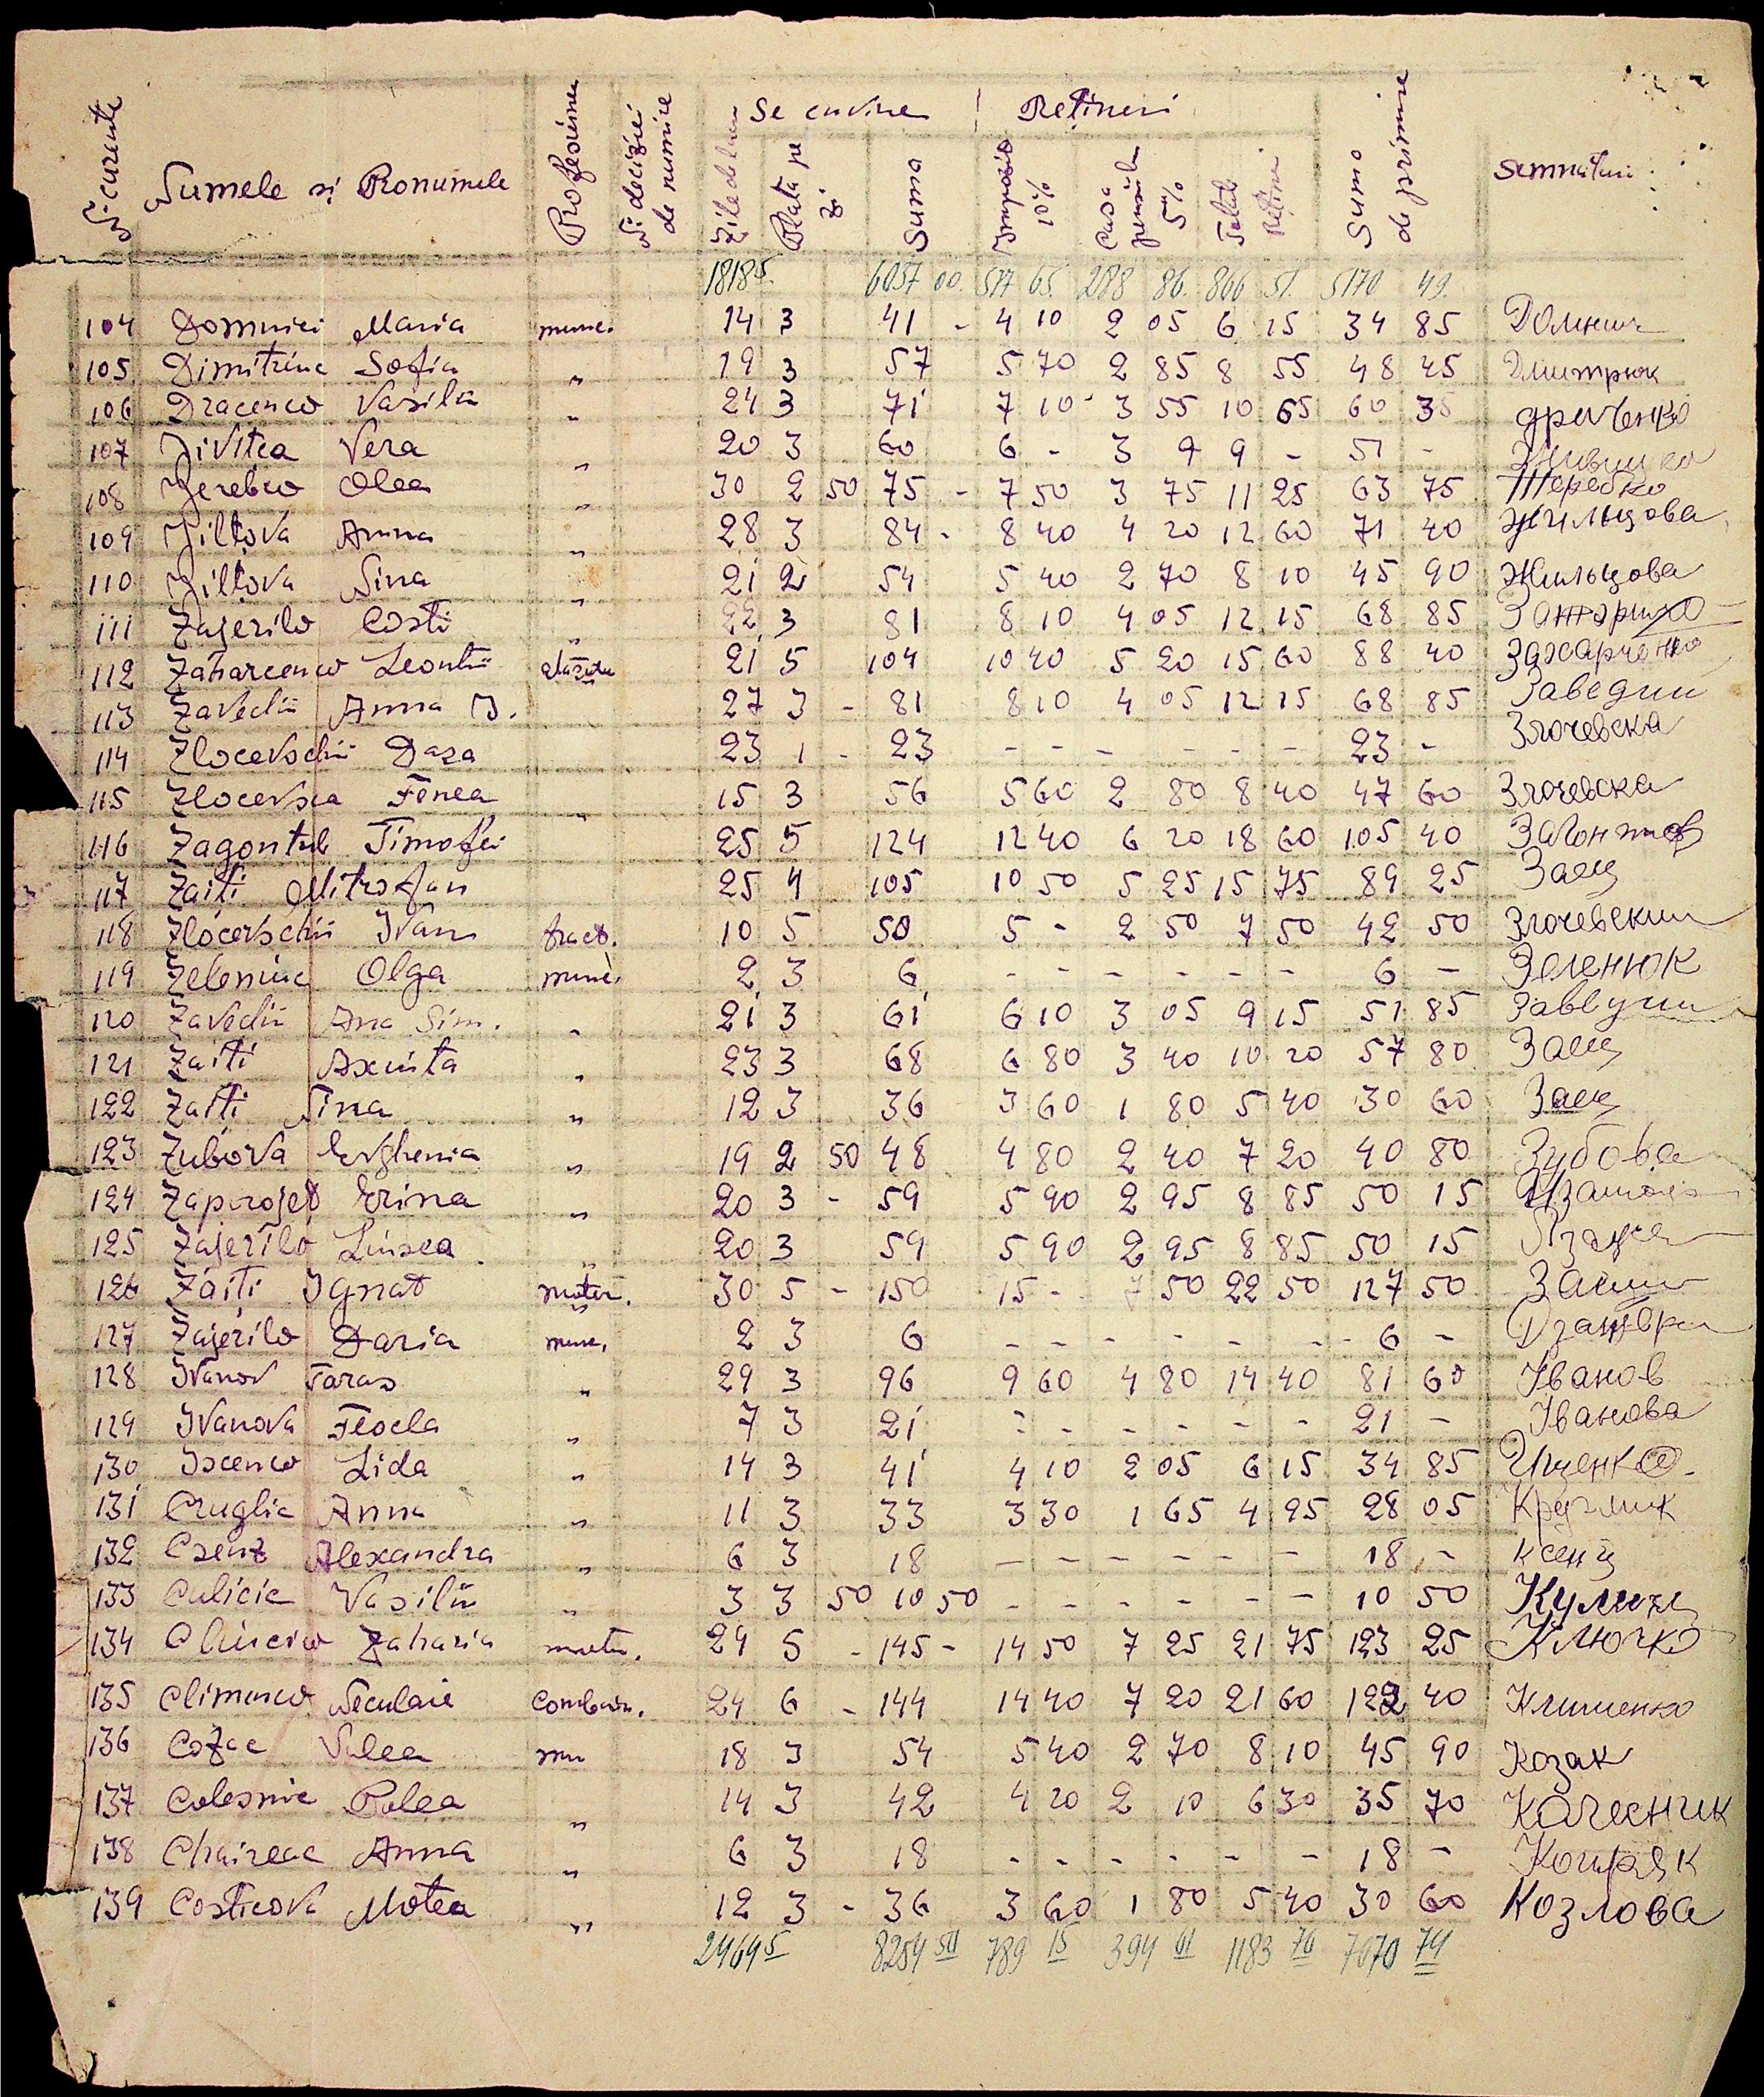 № curente Numele și Pronumele Profesiunea № deciziei de numire Se cuvine Rețineri Suma de primire semnături
Zile de lucru Plata pe zi Suma Impozit 10% Casa pensiilor 5% Total Rețineri
18185 6057 00. 577 65. 288 86. 866 51. 5170 49.
104 Domnici Maria munc. 14 3 41 - 4 10 2 05 6 15 34 85
105 Dimitriuc Sofia " 19 3 57 5 70 2 85 8 55 48 45 Дмитрюк
106 Dracenco Vasilii " 24 3 71 7 10 3 55 10 65 60 35 драченко
107 Jivitca Vera " 20 3 60 6 - 3 9 9 - 51 -
108 Jerebco Olea " 30 2 50 75 - 7 50 3 75 11 25 63 75 Жеребко
109 Jilțova Anna " 28 3 84 - 8 40 4 20 12 60 71 40 Жильцова
110 Jilțova Nina " 21 2 54 5 40 2 70 8 10 45 90 Жильцова
111 Zajerilo Costi " 22 3 81 8 10 4 05 12 15 68 85
112 Zaharcenco Leontii 21 5 104 10 40 5 20 15 60 88 40 Захарченко
113 Zavedii Anna I. 27 3 - 81 8 10 4 05 12 15 68 85 Заведии
114 Zlocevschii Dasa 23 1 - 23 - - - - - - 23 - Злочевска
115 Zlocevsca Fenea " 15 3 56 5 60 2 80 8 40 47 60 Злочевска
116 Zagontul Timofei 25 5 124 12 40 6 20 18 60 105 40
117 Zaiti Mitrofan 25 4 105 10 50 5 25 15 75 89 25 Заец
118 Zlocevschii Ivan tract. 10 5 50 5 - 2 50 7 50 42 50 Злочевский
119 Zeleniuc Olga munc. 2 3 6 - - - - - - 6 - Зеленюк
120 Zavedii Ana Sim. " 21 3 61 6 10 3 05 9 15 51 85
121 Zaiti Axinta " 23 3 68 6 80 3 40 10 20 57 80 Заец
122 Zaiti Nina " 12 3 36 3 60 1 80 5 40 30 60 Заец
123 Zubova Evghenia " 19 2 50 48 4 80 2 40 7 20 40 80 Зубова
124 Zaprojet Erina " 20 3 - 59 5 90 2 95 8 85 50 15
125 Zajerilo Liusea " 20 3 59 5 90 2 95 8 85 50 15
126 Zaiti Ignat motor. 30 5 - 150 15 - 7 50 22 50 127 50
127 Zajerilo Daria munc. 2 3 6 - - - - - - 6 -
128 Ivanov Taras " 29 3 96 9 60 4 80 14 40 81 60 Іванов
129 Ivanova Feocla " 7 3 21 - - - - - - 21 - Іванова
130 Iscenco Lida " 14 3 41 4 10 2 05 6 15 34 85 Ищенко
131 Cruglic Anna " 11 3 33 3 30 1 65 4 95 28 05 Круглик
132 Csenz Alexandra " 6 3 18 - - - - - - 18 - Ксенз
133 Culicic Vasilii " 3 3 50 10 50 - - - - - - 10 50
134 Cliucico Zaharia motor. 29 5 - 145 - 14 50 7 25 21 75 123 25 Ключко
135 Climenco Neculaie combain. 24 6 - 144 14 40 7 20 21 60 122 40 Клименко
136 Cozac Valea mu 18 3 54 5 40 2 70 8 10 45 90 Козак
137 Colesnic Polea " 14 3 42 4 20 2 10 6 30 35 70 Колесник
138 Chaireac Anna " 6 3 18 - - - - - - 18 -
139 Costicova Motea " 12 3 - 36 3 60 1 80 5 40 30 60 Козлова
24645 8254 50 789 15 394 61 1183 76 7070 74